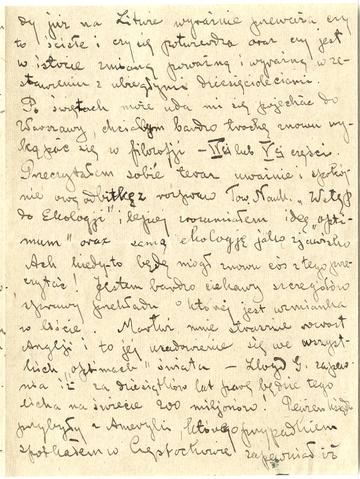 dy już na Litwie wyraźnie przeważa czy
to ściśle i czy się potwierdza oraz czy jest
w istocie zmianą poważną i wyraźną w ze-
stawieniu z ubiegłymi dziesięcioleciami.
Po świętach może uda mi się pojechać do
Warszawy, chciałbym bardzo trochę znowu wy-
kąpać się w filozofji – lub V części.
Przeczytałem sobie teraz uważnie i spokoj-
nie ową odbitkę z rozpraw Tow. Nauk. „Wstęp
do Ekologji" i lepiej zrozumiałem ideę „opti-
mum" oraz samą ekologję jako zjawisko
Ach kiedyż to będę mógł znowu coś z tego prze-
czytać! Jestem bardzo ciekawy szczegółów
sprawy przekładu o której jest wzmianka
w liście. Martwi mnie strasznie rozwój
Anglji i to jej usadowienie się we wszyst-
kich „optimach" świata – Lloyd G. zapew-
nia iż za dziesiątków lat parę będzie tego
licha na świecie 200 miljonów! Pewien ksiądz
przybyły z Ameryki, którego przypadkiem
spotkałem w Częstochowie zapewniał iż